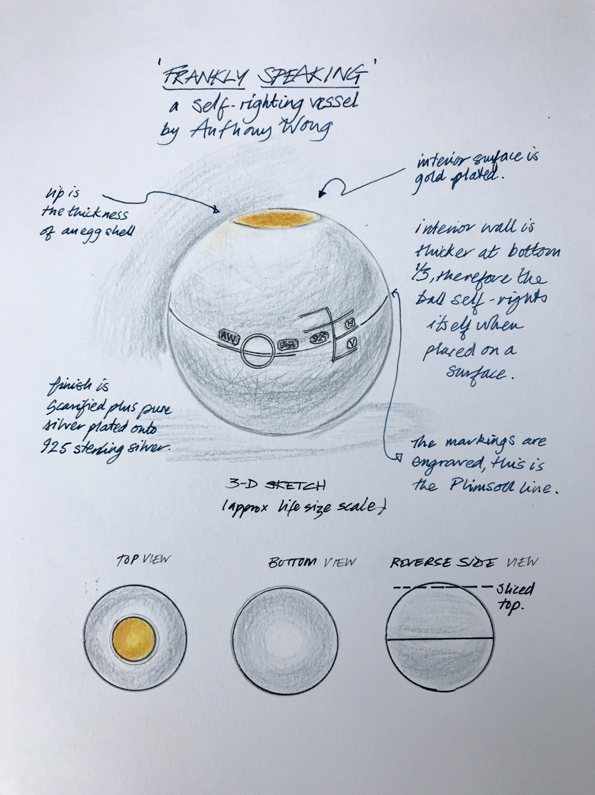 'FRANKLY SPEAKING'
a self-righting vessel
by Anthony Wong
lip is
the thickness
of an egg shell
interior surface is
gold plated.
interior wall is
thicker at bottom
1/3, therefore the
ball self-rights
itself when
placed on a
surface.
AW
925
finish is
scarified plus pure
silver plated onto
925 sterling silver.
The markings are
engraved, this is
the Plimsoll line.
3-D SKETCH
(approx life size scale)
TOP VIEW
BOTTOM VIEW
REVERSE SIDE VIEW
sliced
top.